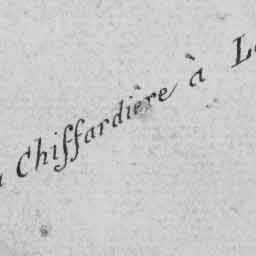 Chiffardière à